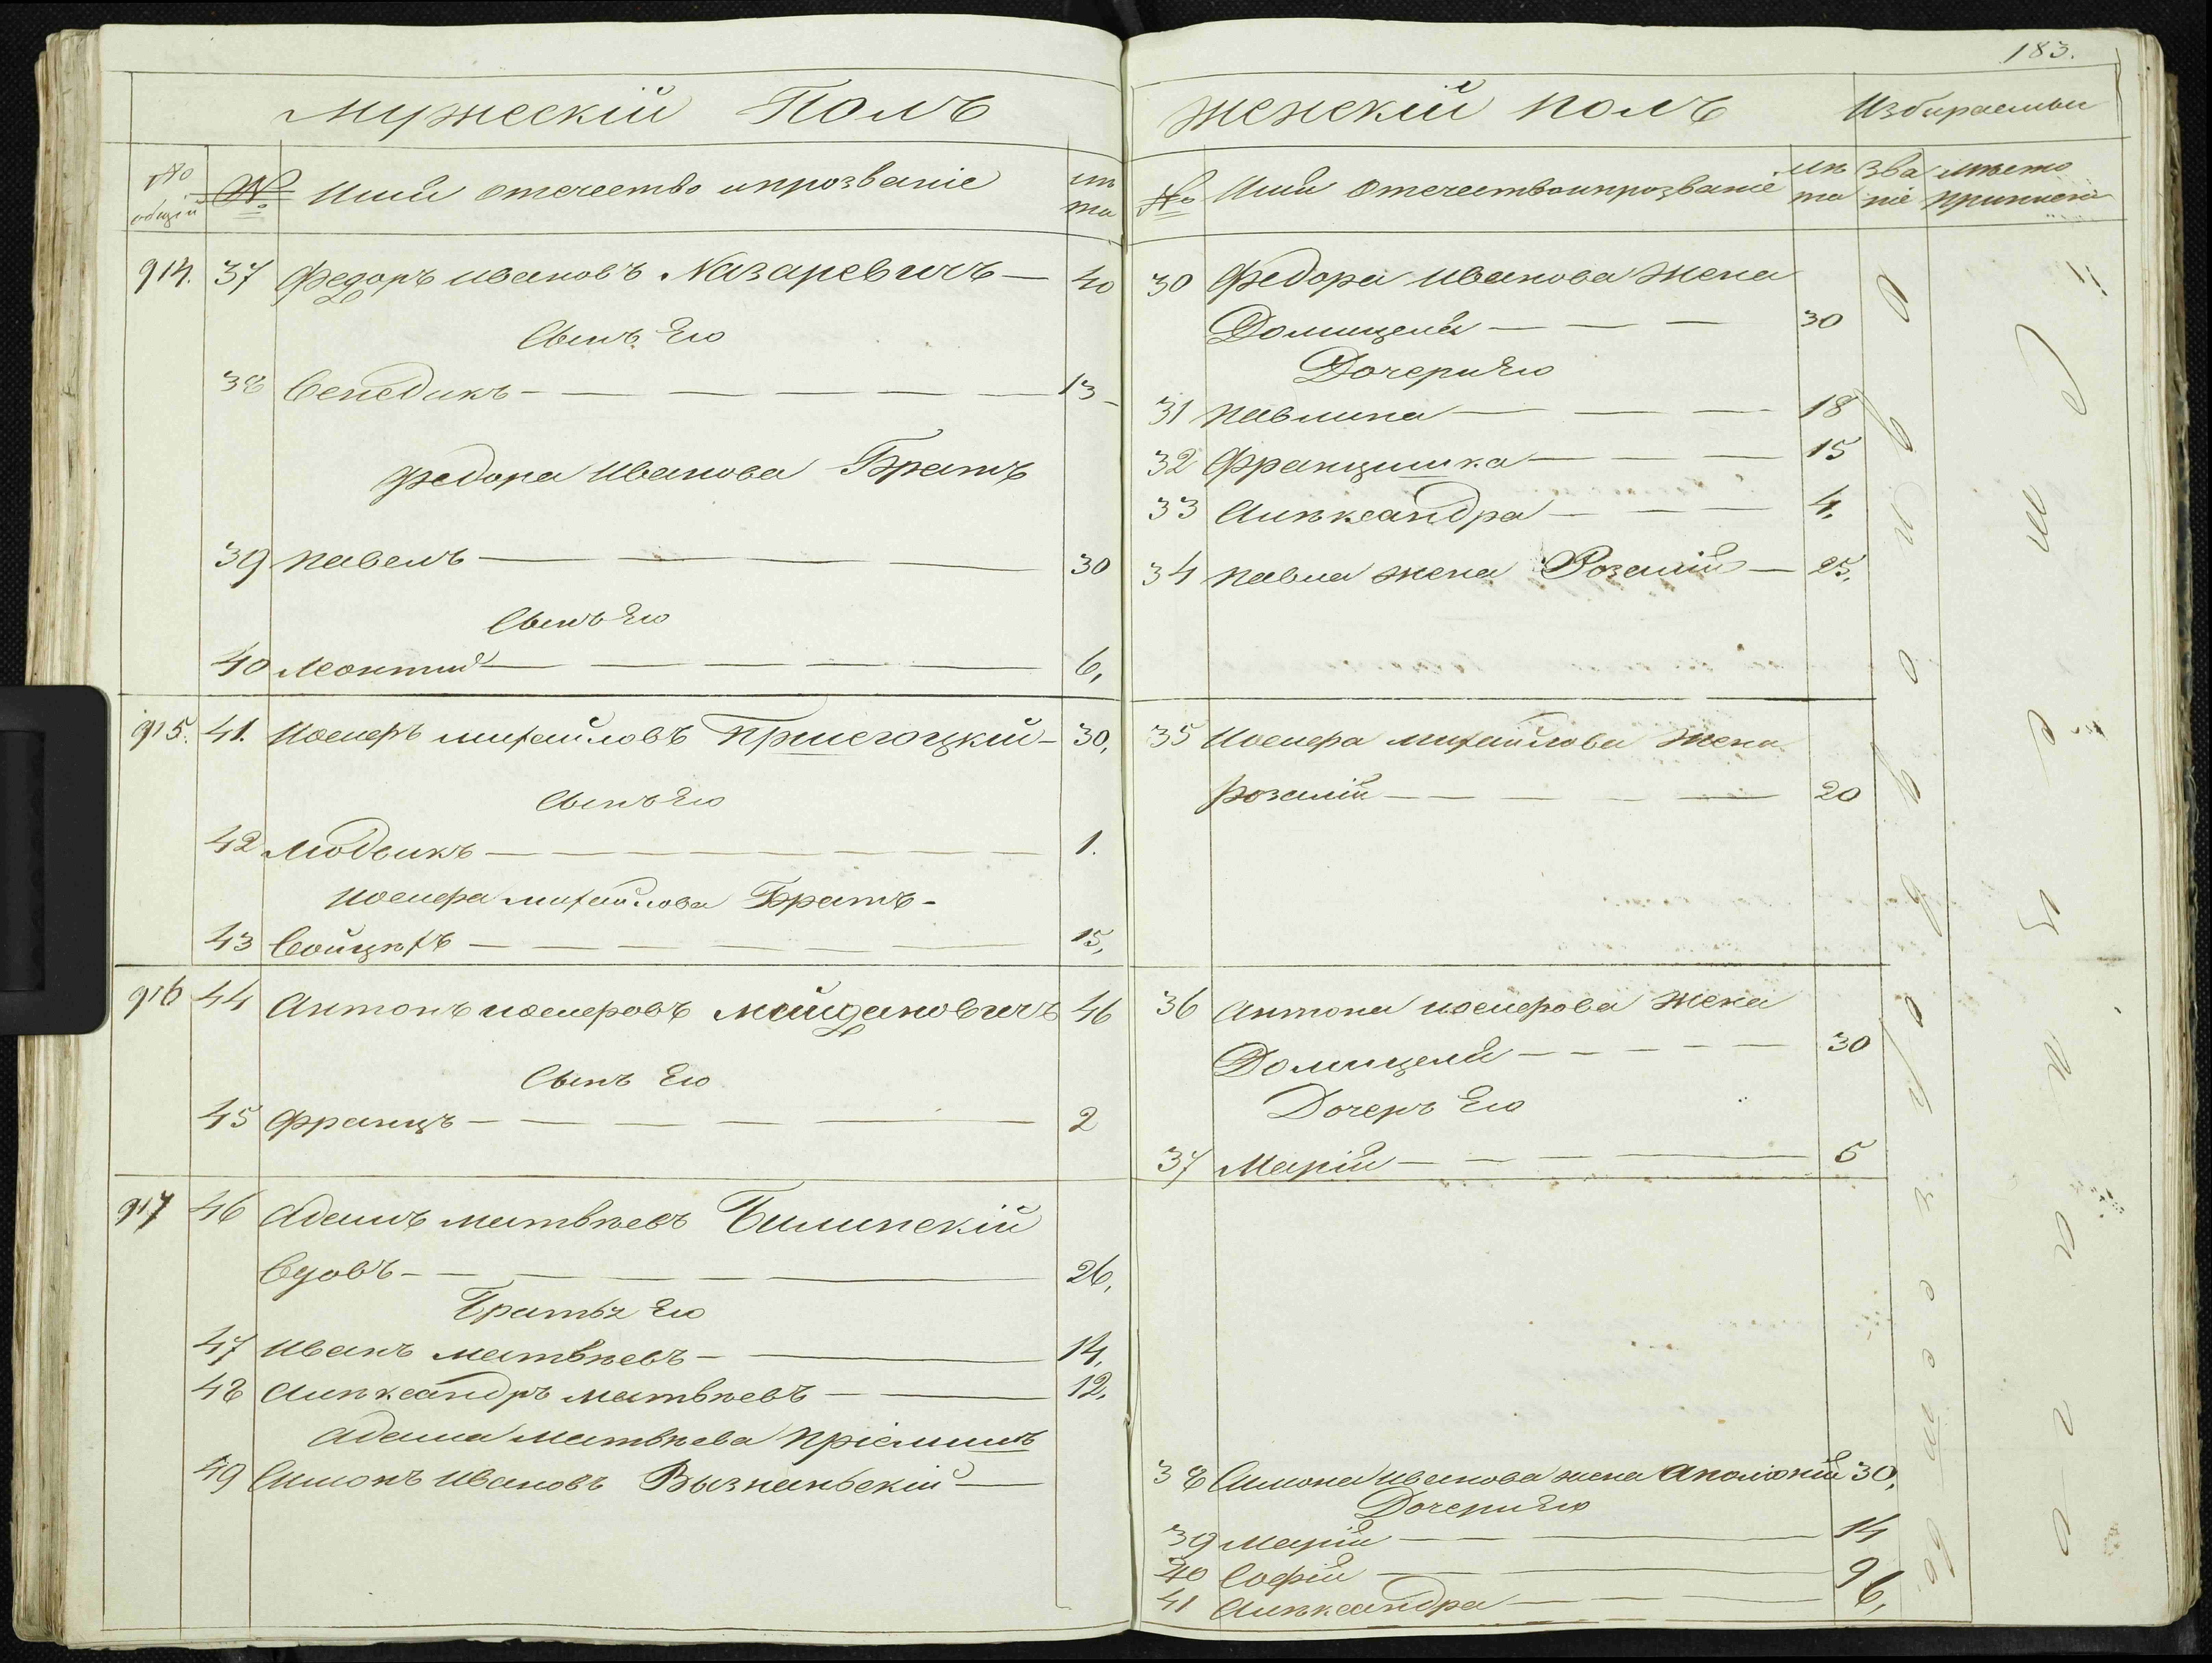 183.
Мужескій Полъ
№ общій
№
Имя отечество и прозваніе
лѣта
914. 37 Федоръ Ивановъ Назаревичъ — 40
Сынъ Его
38 Венедикъ — 13
Федора Иванова Братъ
39 Павелъ — 30
Сынъ Его
40 Леонтий — 6,
915. 41. Иосифъ Михайловъ Пршегоцкій — 30,
Сынъ Его
42 Людвикъ — 1.
Иосифа Михайлова Братъ —
43 Войцѣхъ — 15,
916 44 Антонъ Иосифовъ Мойдановичъ 46
Сынъ Его
45 Францъ — 2
917 46 Адамъ Матвѣевъ Билинскій
Вдовъ — 26,
Братья Его
47 Иванъ Матвѣевъ — 14,
48 Алѣксандръ Матвѣевъ — 12,
Адама Матвѣева Пріемышъ
49 Симонъ Ивановъ Вызнаньскій —
Женскій Полъ
Избираемыи
№
Имя Отечество и прозваніе
лѣта
званіе
мѣсто приписки
30 Федора Иванова Жена
Домицеля — 30
Дочери Его
31 Павлина — 18
32 Францишка — 15
33 Алѣксандра — 4,
34 Павла жена Розалія — 25,
35 Иосифа Михайлова Жена
Розалія — 20
36 Антона Иосифова Жена
Домицеля — 30
Дочеръ Его
37 Марія — 5
38 Симона Иванова жена Аполонія 30,
Дочери Его
39 Марія — 14
40 Софія — 9
41 Алѣксандра — 6,